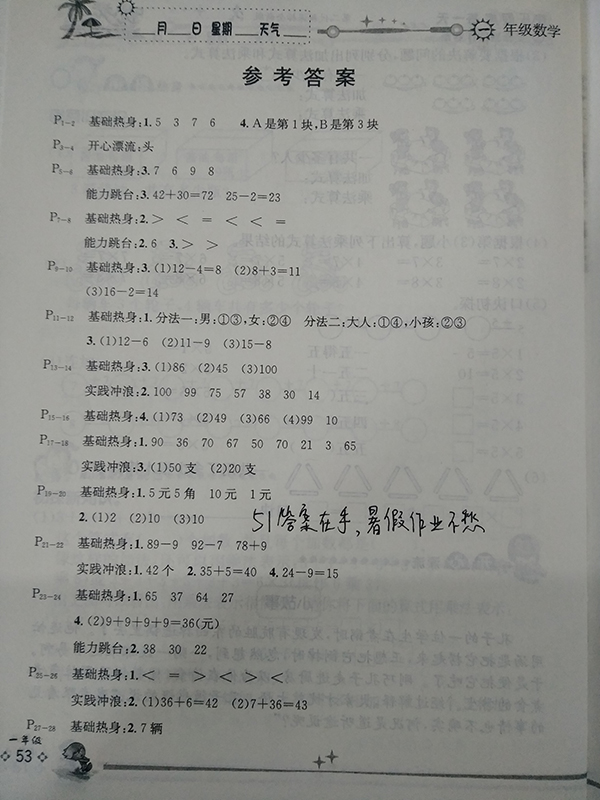 月 日 星期 天气
一 年级数学
参考答案
P1-2 基础热身:1. 5 3 7 6 4. A是第1块,B是第3块
P3-4 开心漂流:头
P5-6 基础热身:3. 7 6 9 8
能力跳台:3. 42+30=72 25-2=23
P7-8 基础热身:2. > < = < < =
能力跳台:2. 6 3. > >
P9-10 基础热身:3. (1)12-4=8 (2)8+3=11
(3)16-2=14
P11-12 基础热身:1. 分法一:男:①③,女:②④ 分法二:大人:①④,小孩:②③
3. (1)12-6 (2)11-9 (3)15-8
P13-14 基础热身:3. (1)86 (2)45 (3)100
实践冲浪:2. 100 99 75 57 38 30 14
P15-16 基础热身:4. (1)73 (2)49 (3)66 (4)99 10
P17-18 基础热身:1. 90 36 70 67 50 70 21 3 65
实践冲浪:3. (1)50支 (2)20支
P19-20 基础热身:1. 5元5角 10元 1元
2. (1)2 (2)10 (3)10 51答案在手,暑假作业不愁
P21-22 基础热身:1. 89-9 92-7 78+9
实践冲浪:1. 42个 2. 35+5=40 4. 24-9=15
P23-24 基础热身:1. 65 37 64 27
4. (2)9+9+9+9=36(元)
能力跳台:2. 38 30 22
P25-26 基础热身:1. < = > < > <
实践冲浪:2. (1)36+6=42 (2)7+36=43
P27-28 基础热身:2. 7辆
一年级
53